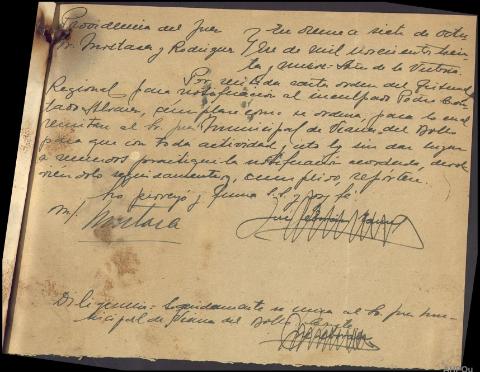 Providencia del Juez
Sr. Mostaza y Rodriguez
En Orense a siete de octu-
bre de mil novecientos trein-
ta y nueve. Año de la Victoria.
Por recibida carta orden del Tribunal
Regional para notificación al inculpado Pedro
Alvarez, cúmplase como se ordena, para lo cual
remitan al Sr. Juez Municipal de Viana del Bollo
para que con toda actividad, esto y sin dar lugar
a practique la notificación acordada, devol-
viendolo seguidamente, cumplido, reporten.
Lo proveyó y firma S.S. doy fé.
m/
Mostaza
Diligencia: Seguidamente se remite al Sr. Juez mu-
nicipal de Viana del Bollo